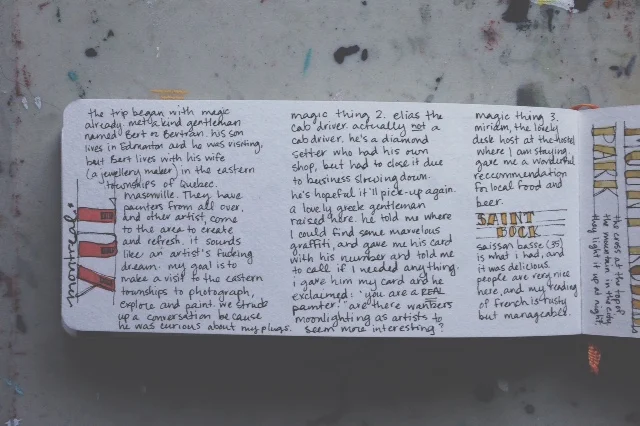 the trip began with magic
already. met a kind gentleman
named Bert or Bertran. his son
lives in Edmonton and he was visiting,
but Bert lives with his wife
(a jewellery maker) in the eastern
townships of Quebec.
masonville. They have
painters from all over,
and other artist, come
to the area to create
and refresh. it sounds
like an artist's fucking
dream. my goal is to
make a visit to the eastern
townships to photograph,
explore and paint. we struck
up a conversation because
he was curious about my plugs.
montreal:
magic thing 2. elias the
cab driver. actually not a
cab driver. he's a diamond
setter who had his own
shop, but had to close it due
to business slowing down.
he's hopeful it'll pick-up again.
a lovely greek gentleman
raised here. he told me where
I could find some marvelous
graffiti, and gave me his card
with his number and told me
to call if I needed anything.
i gave him my card and he
exclaimed: "you are a REAL
painter." are there
moonlighting as artists to
seem more interesting?
magic thing 3.
miriam, the lovely
desk host at the hostel
where I am staying.
gave me a wonderful
reccommendation
for local food and
beer.
SAINT
BOCK
saisson basse (35)
is what i had, and
it was delicious.
people are very nice
here, and my reading
of French is rusty
but manageable.
PARK
the cross at the top of
the mountain in the city.
they light it up at night.